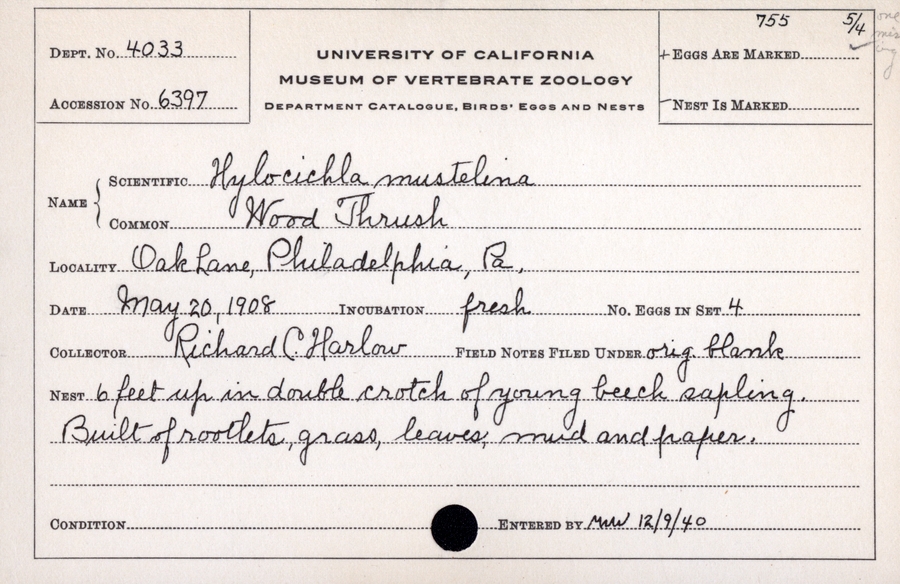 755 5/4 one missing
DEPT. No. 4033
UNIVERSITY OF CALIFORNIA
+ EGGS ARE MARKED
MUSEUM OF VERTEBRATE ZOOLOGY
ACCESSION No. 6397
DEPARTMENT CATALOGUE, BIRDS' EGGS AND NESTS
— NEST IS MARKED
NAME
SCIENTIFIC Hylocichla mustelina
COMMON Wood Thrush
LOCALITY Oak Lane, Philadelphia, Pa.
DATE May 20, 1908 INCUBATION fresh No. EGGS IN SET 4
COLLECTOR Richard C. Harlow FIELD NOTES FILED UNDER orig. blank
NEST 6 feet up in double crotch of young beech sapling.
Built of rootlets, grass, leaves, mud and paper.
CONDITION ENTERED BY 12/9/40